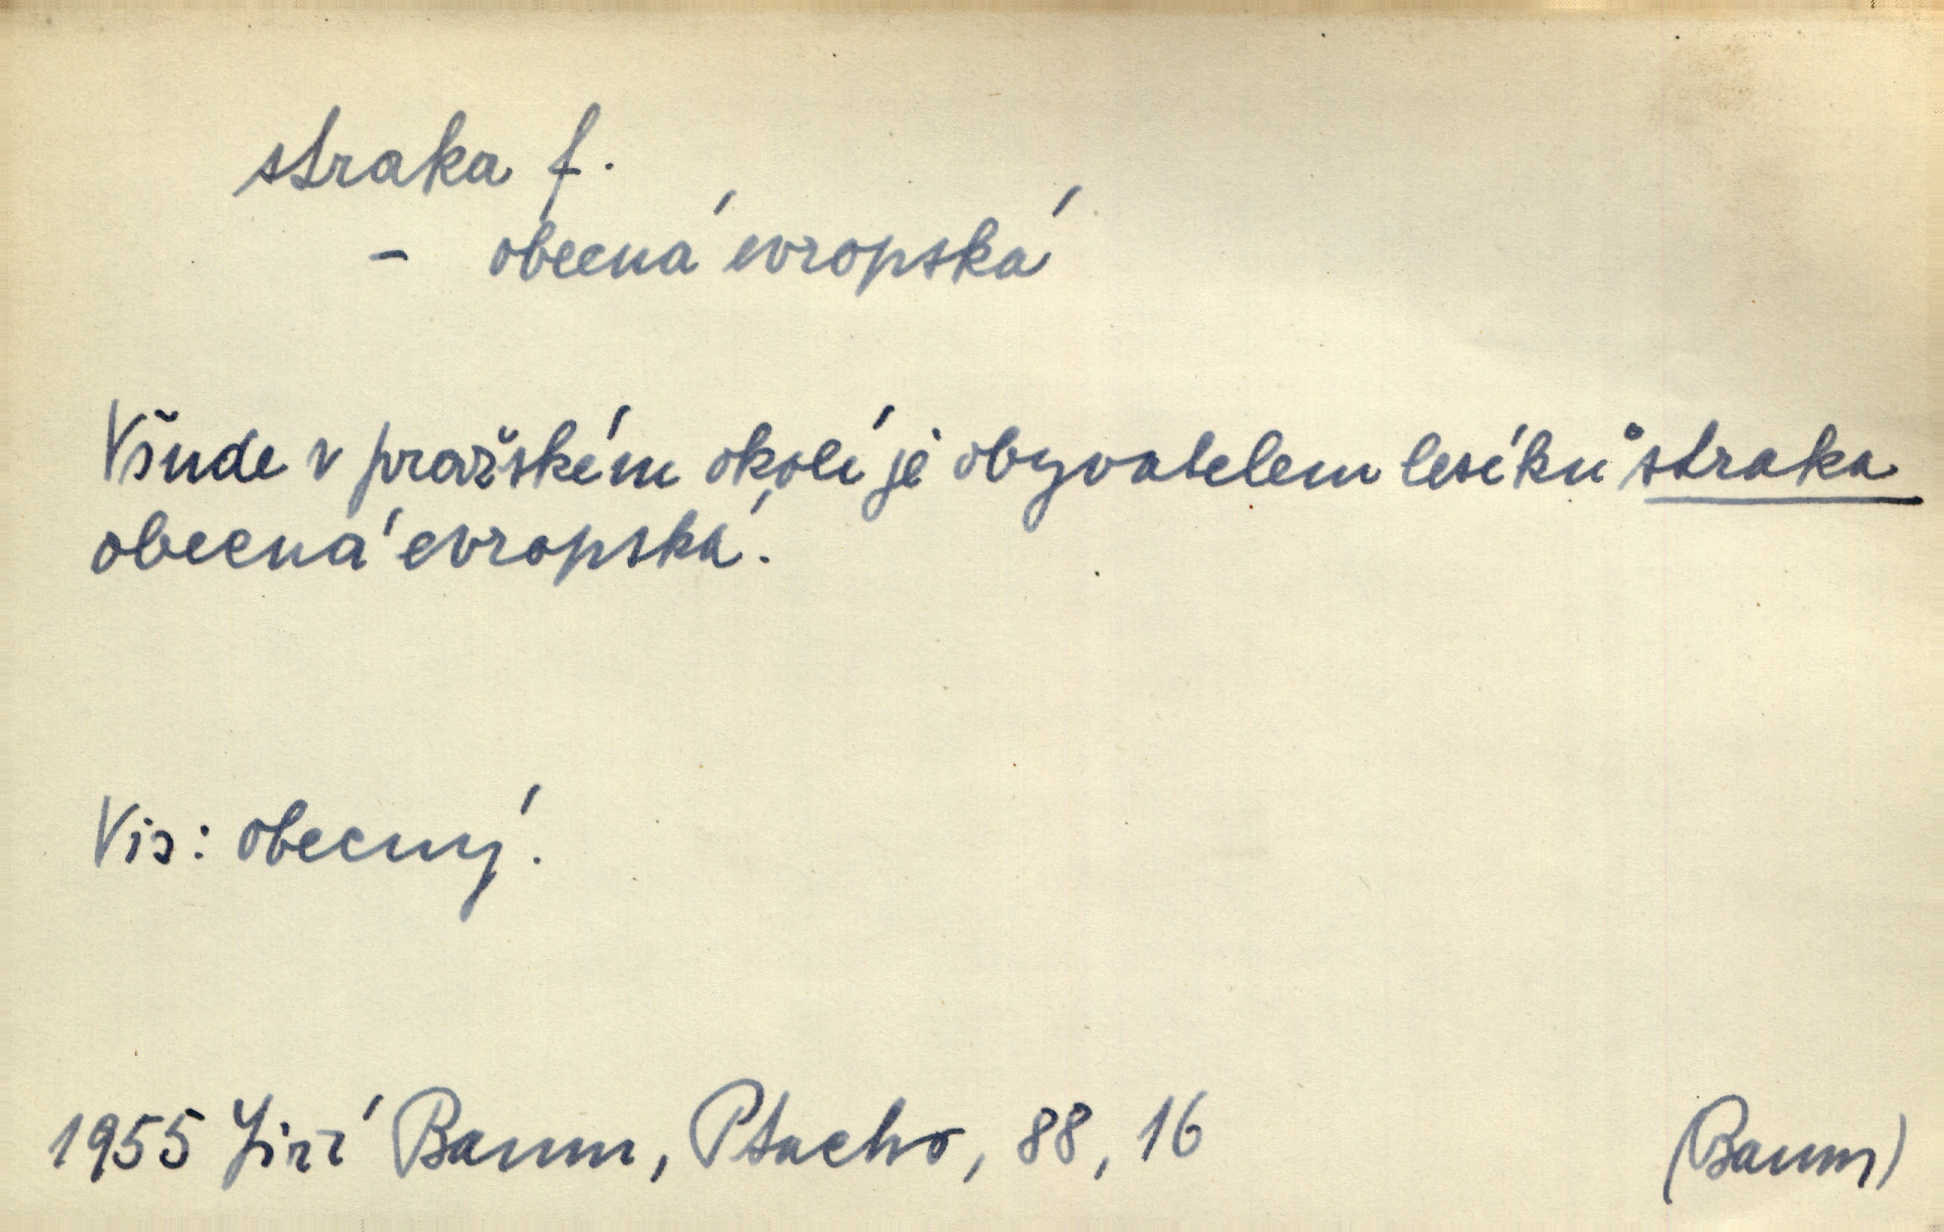 straka f.
- obecná evropská
Všude v pražském okolí je obyvatelem lesíků straka
obecná evropská.
Viz: obecný.
1955 Jiří Baum, Ptactvo, 88, 16 (Baum)